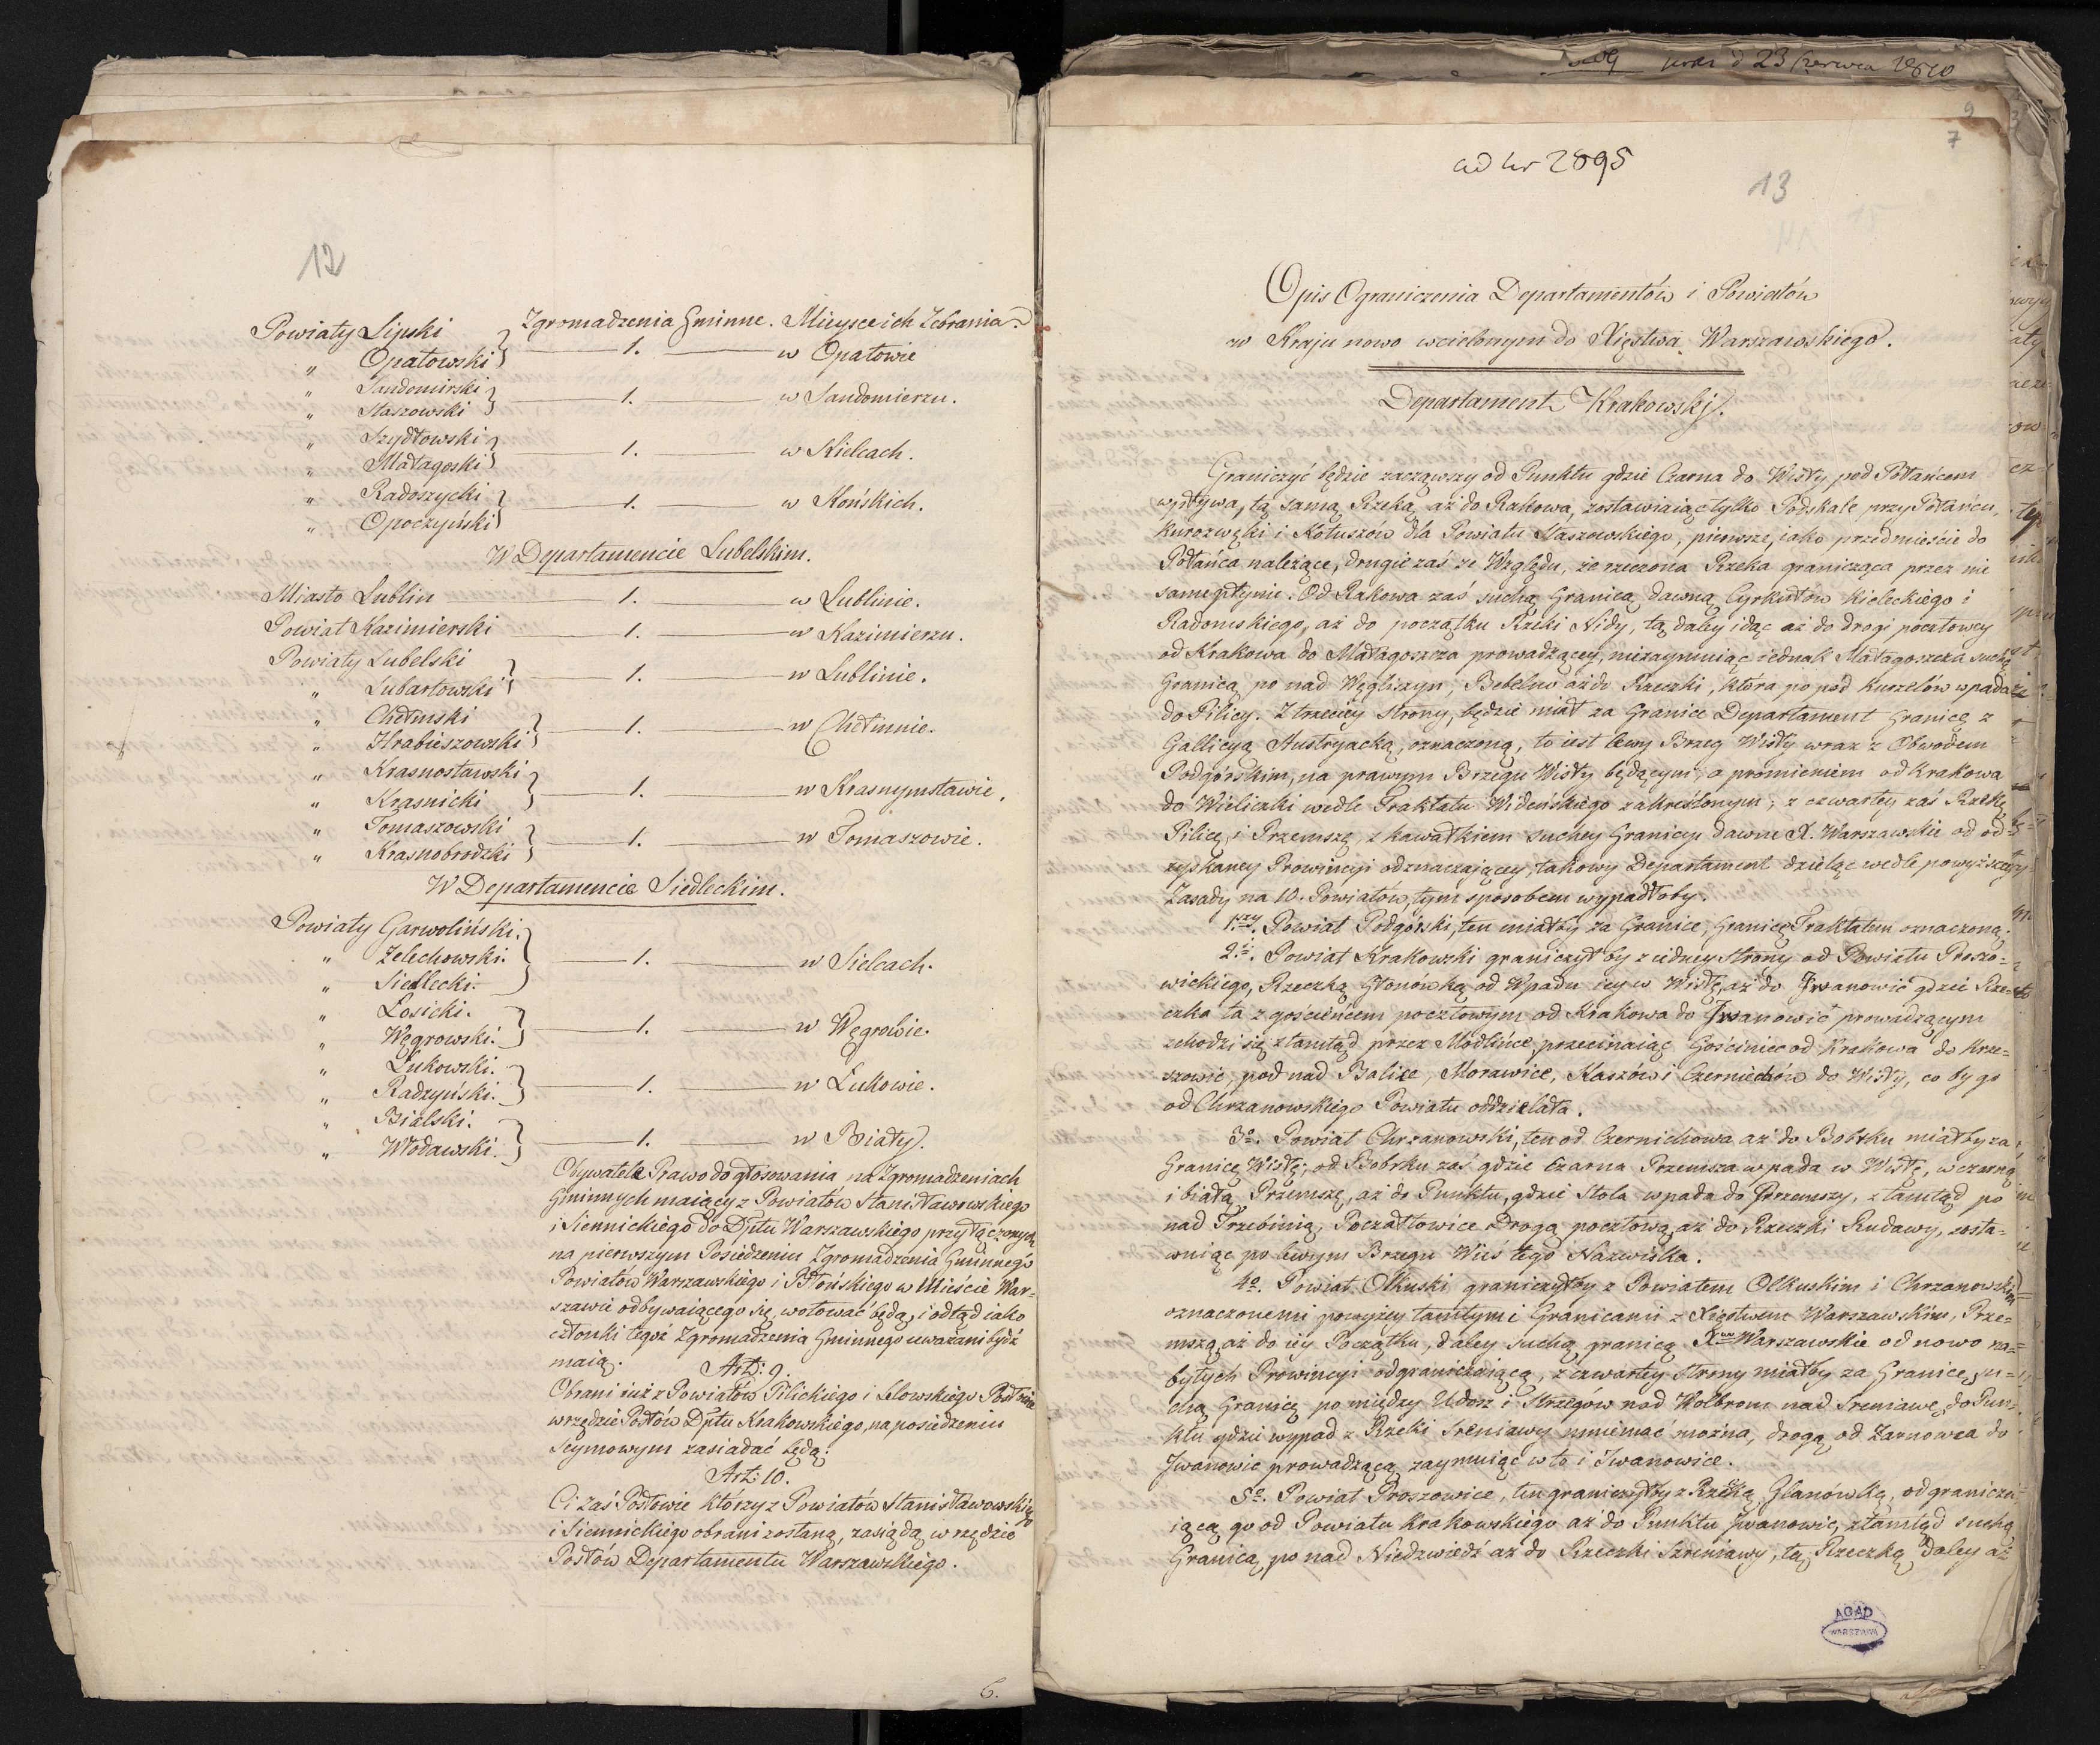 12
Zgromadzenia Gminne. Mieysce ich Zebrania.
Powiaty Lipski
„ Opatowski } 1. w Opatowie
„ Sandomirski
„ Staszowski } 1. w Sandomierzu.
„ Szydłowski
„ Małagoski } 1. w Kielcach.
„ Radoszycki
„ Opoczyński } 1. w Końskich.
W Departamencie Lubelskim.
Miasto Lublin 1. w Lublinie.
Powiat Kazimierski 1. w Kazimierzu.
Powiaty Lubelski
„ Lubartowski } 1. w Lublinie.
„ Chełmski
„ Hrabieszowski } 1. w Chełmnie.
„ Krasnostawski
„ Krasnicki } 1. w Krasnymstawie.
„ Tomaszowski
„ Krasnobrodzki } 1. w Tomaszowie.
W Departamencie Siedleckim.
Powiaty Garwoliński.
„ Zelechowski. } 1. w Sielcach.
„ Siedlecki.
„ Łosicki.
„ Węgrowski. } 1. w Węgrowie.
„ Łukowski.
„ Radzyński. } 1. w Łukowie.
„ Bialski.
„ Włodawski. } 1. w Biały.
Obywatele Prawo do głosowania na Zgromadzeniach
Gminnych maiący z Powiatów Stanisławowskiego
i Siennickiego do Dptu Warszawskiego przyłączonych
na pierwszym Posiedzeniu Zgromadzenia Gminnego
Powiatów Warszawskiego i Błońskiego w Mieście War-
szawie odbywaiącego się wotować będą, i odtąd iako
członki tegoż Zgromadzenia Gminnego uważani bydź
maią.
Art: 9.
Obrani iuż z Powiatów Pilickiego i Lelowskiego Posłowie
w rzędzie Posłów Dptu Krakowskiego, na posiedzeniu
Seymowym zasiadać będą.
Art: 10.
Ci zaś Posłowie którzy z Powiatów Stanisławowskiego
i Siennickiego obrani zostaną, zasiądą w rzędzie
Posłów Departamentu Warszawskiego.
6.
23 Czerwca 1810
9
7
ad Nr 2895
13
Opis Ograniczenia Departamentów i Powiatów
w Kraju nowo wcielonym do Xięstwa Warszawskiego.
Departament Krakowski.
Graniczyć będzie zacząwszy od Punktu gdzie Czarna do Wisły pod Połańcem
wpływa, tą samą Rzeką aż do Rakowa, zostawiaiąc tylko Podskale przy Połańcu,
Kurozwęki i Kotuszów dla Powiatu Staszowskiego, pierwsze, iako przedmieście do
Połańca należące, drugie zaś ze Względu, że rzeczona Rzeka granicząca przez nie
same płynie. Od Rakowa zaś suchą Granicą dawną Cyrkułów Kieleckiego i
Radomskiego, aż do początku Rzéki Nidy, tą daley idąc aż do drogi pocztowey
od Krakowa do Małagoszcza prowadzącey, niezaymuiąc iednak Małagoszcza suchą
Granicą po nad Węgliszyn, Bebelno aż do Rzeczki, która po pod Kurzelów wpada
do Pilicy. Z trzeciey strony, będzie miał za Granice Departament Granicę z
Gallicyą Austryacką, oznaczoną, to iest lewy Brzeg Wisły wraz z Obwodem
Podgórskim, na prawym Brzegu Wisły będącym, a promieniem od Krakowa
do Wieliczki wedle Traktatu Wideńskiego zakreślonym; z czwartey zaś Rzékę
Pilicę, i Przemszę, z kawałkiem suchey Granicy dawne X. Warszawskie od od-
zyskaney Prowincyi odznaczaiącey, takowy Departament dzieląc wedle powyższey
Zasady na 10. Powiatów, tym sposobem wypadłoby.
1szy. Powiat Podgórski, ten miałby za Granice, Granicę Traktatem oznaczoną.
2i. Powiat Krakowski graniczyłby z iedney strony od Powiatu Proszo-
wickiego, Rzeczką Głonówką od Wpadu iey w Wisłę, aż do Iwanowic gdzie Rze-
czka ta z gościeńcem pocztowym od Krakowa do Iwanowic prowadzącym
schodzi się, ztamtąd przez Modlińce przecinaiąc Gościniec od Krakowa do Krze-
szowic, pod nad Balice, Morawice, Kaszów i Czerniechów do Wisły, co by go
od Chrzanowskiego Powiatu oddzielała.
3o. Powiat Chrzanowski, ten od Czernichowa aż do Bobrku miałby za
Granicę Wisłę, od Bobrku zaś gdzie Czarna Przemsza wpada w Wisłę, w czarną
i białą Przemszę, aż do Punktu, gdzie Stola wpada do Przemszy, ztamtąd po
nad Trzebinią, Poczałtowice drogą pocztową aż do Rzeczki Rudawy, zosta-
wuiąc po lewym Brzegu Wieś tego Nazwiska.
4o. Powiat Olkuski graniczyłby z Powiatem Olkuskim i Chrzanowskim
oznaczonemi powyżey tamtymi Granicami z Xięstwem Warszawskim, Prze-
mszą aż do iey Początku, daley suchą granicą Xtwo Warszawskie od nowo na-
bytych Prowincyi odgraniczaiącą, z czwartey strony miałby za Granice, su-
chą Granicę pomiędzy Udorz i Strzegów nad Wolbrom nad Sreniawę do Pun-
ktu gdzie wypad z Rzeki Sreniawy mniemać można, drogą od Zarnowca do
Iwanowic prowadzącą zaymuiąc w to i Iwanowice.
5o. Powiat Proszowice, ten graniczyłby z Rzéką Glanówką, odgranicza-
iącą go od Powiatu Krakowskiego aż do Punktu Iwanowic, ztamtąd suchą
Granicą, po nad Niedzwiedź aż do Rzeczki Szreniawy, tą Rzeczką daley aż
AGAD
WARSZAWA